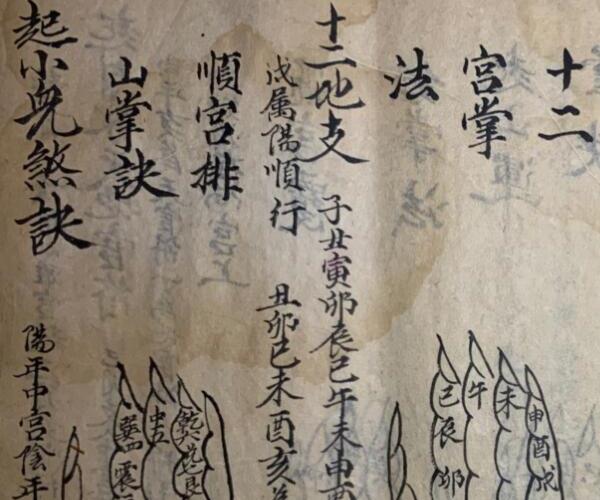 十二
宮掌
法
申酉戌
未
午
巳辰卯
十二地支 子丑寅卯辰巳午未申酉
戌属陽順行 丑卯巳未酉亥
順宮排
山掌訣
乾兌艮
中五
巽震
起小兒煞訣 陽年中宮陰年